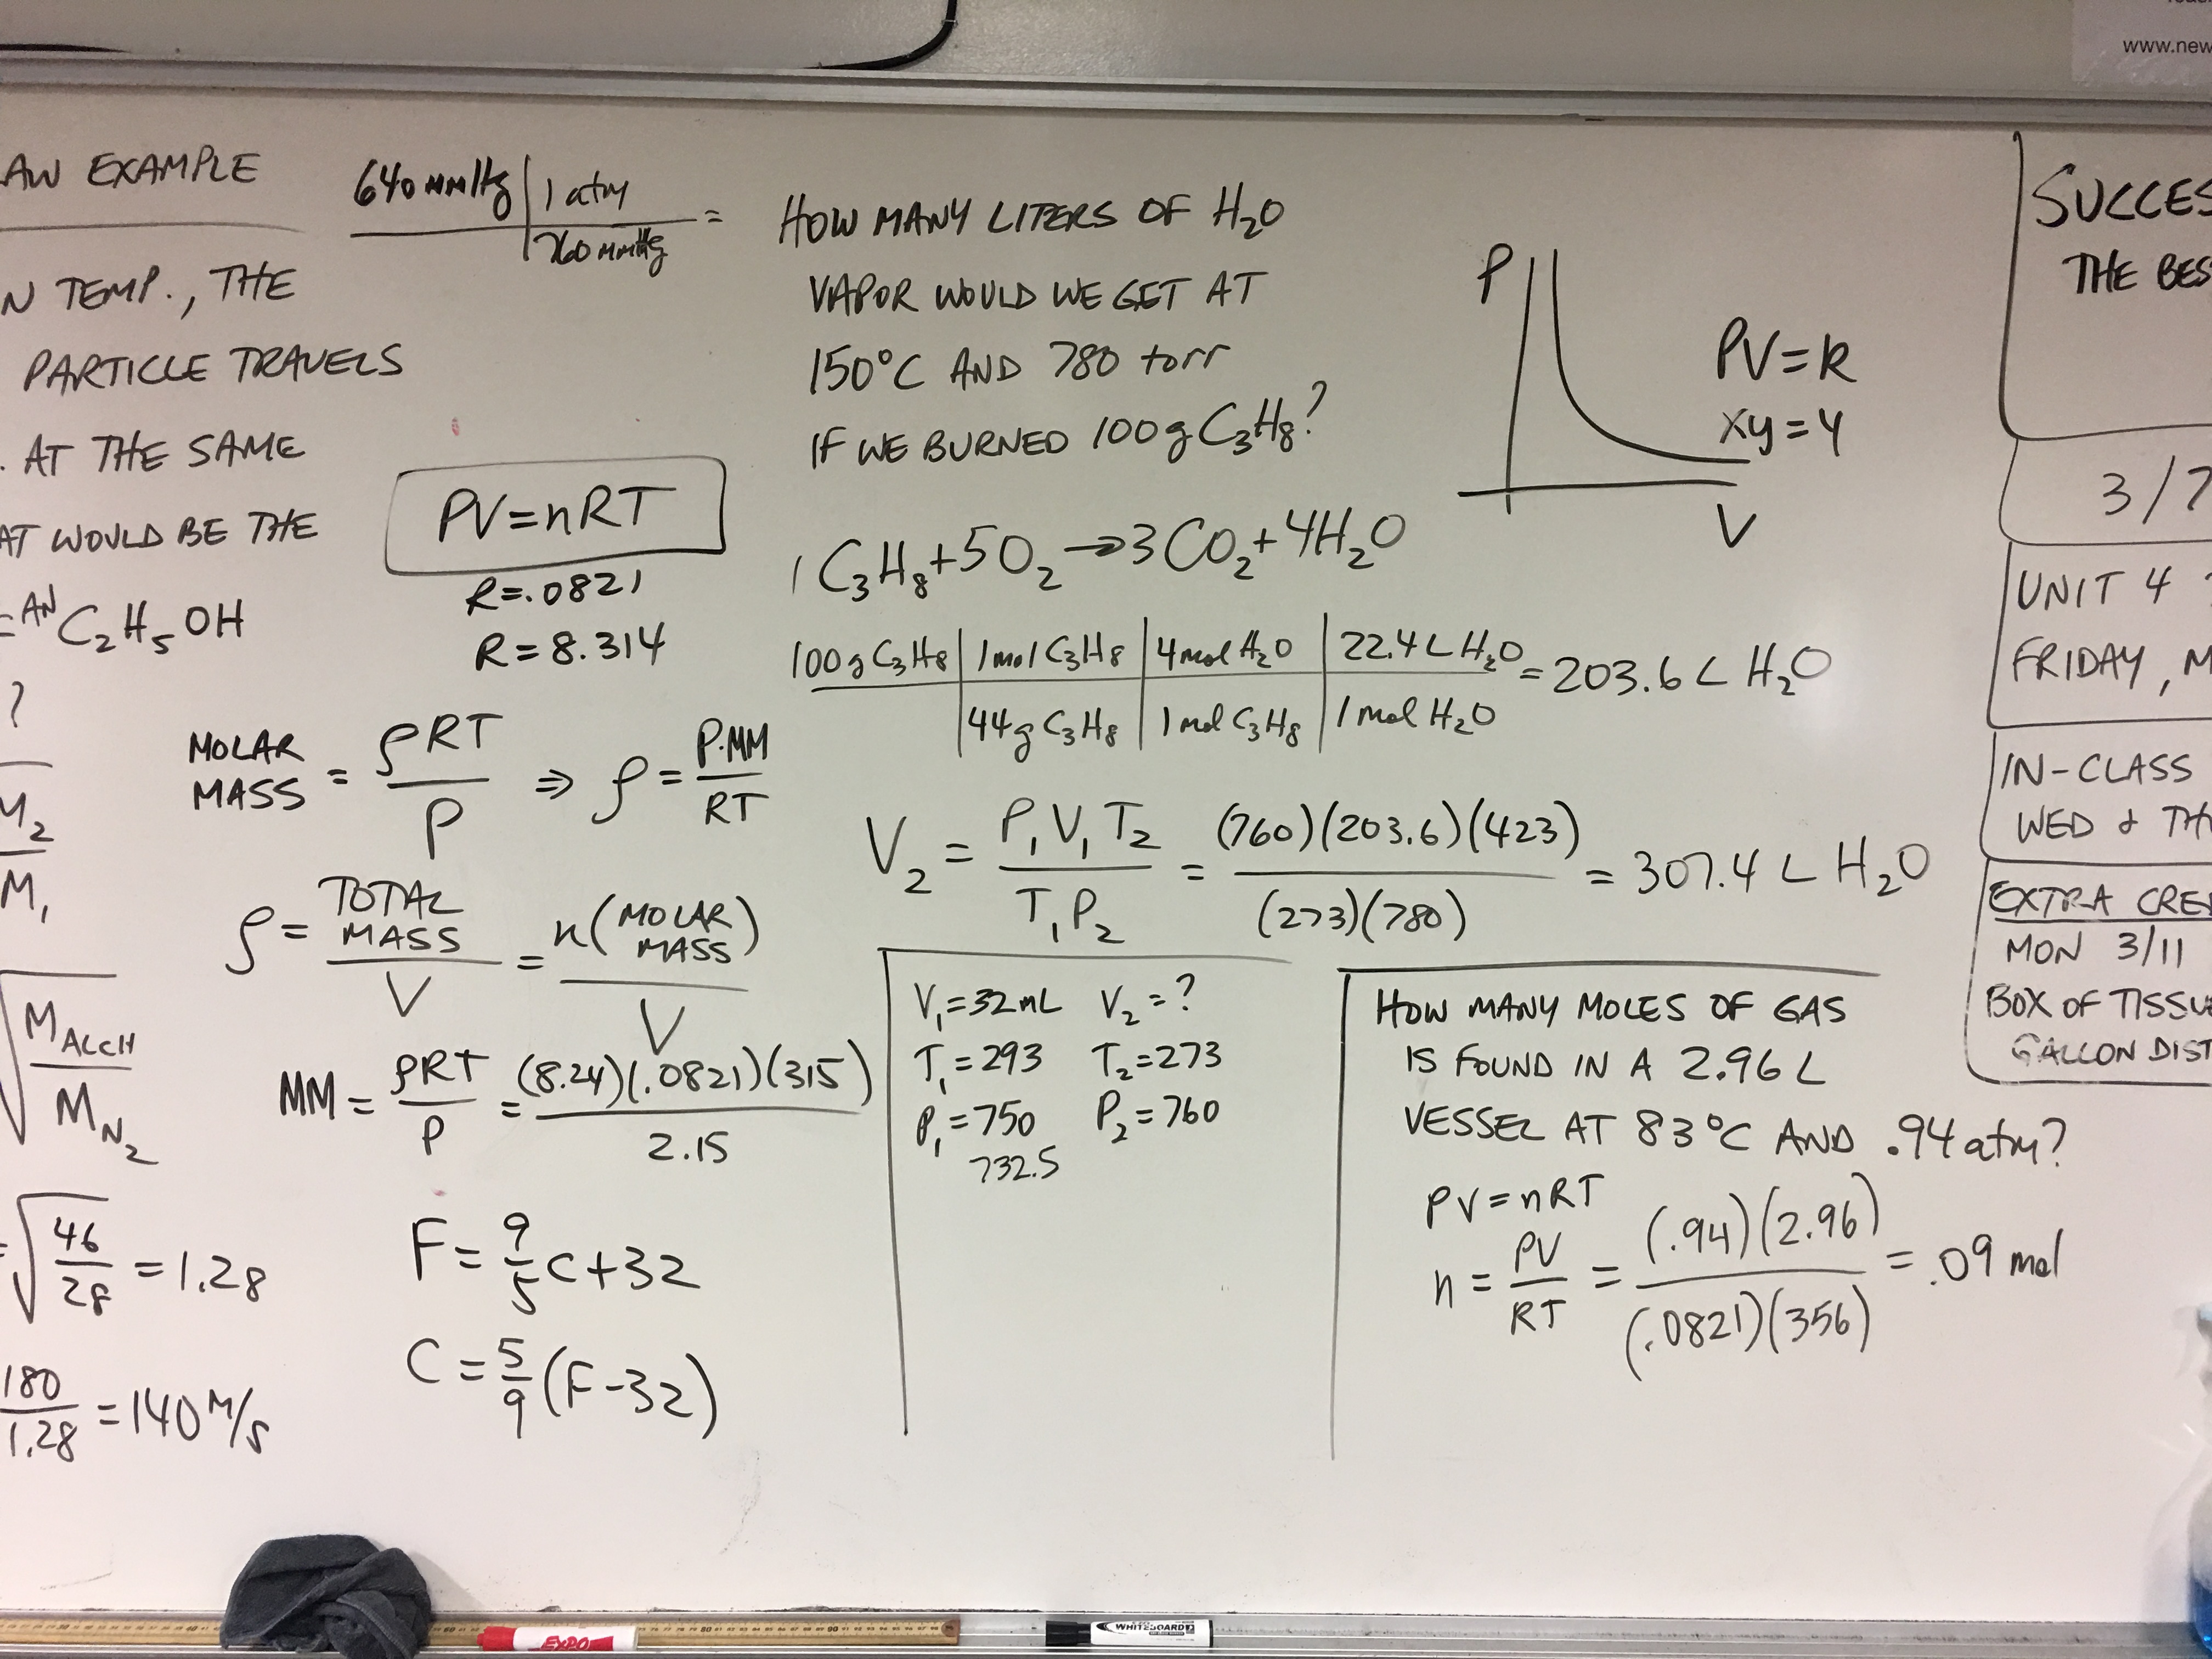 www.new
AW EXAMPLE
N TEMP., THE
PARTICLE TRAVELS
. AT THE SAME
AT WOULD BE THE
= AN C₂H₅OH
?
M₂
M₁
M_ALCH
M_N₂
√46/28 = 1.28
180/1.28 = 140 M/S
640 mmHg | 1 atm =
760 mmHg
PV=nRT
R=.0821
R=8.314
MOLAR MASS = ρRT/P ⇒ ρ = P·MM/RT
ρ = TOTAL MASS/V = n(MOLAR MASS)/V
MM = ρRT/P = (8.24)(.0821)(315)/2.15
F = 9/5 C + 32
C = 5/9 (F-32)
HOW MANY LITERS OF H₂O
VAPOR WOULD WE GET AT
150°C AND 780 torr
IF WE BURNED 100g C₃H₈?
1 C₃H₈+5O₂→3CO₂+4H₂O
100g C₃H₈ | 1mol C₃H₈ | 4mol H₂O | 22.4L H₂O = 203.6 L H₂O
44g C₃H₈ | 1mol C₃H₈ | 1mol H₂O
V₂ = P₁V₁T₂/T₁P₂ = (760)(203.6)(423)/(273)(780) = 307.4 L H₂O
V₁=32mL V₂=?
T₁=293 T₂=273
P₁=750 P₂=760
732.5
P
V
PV=k
xy=4
HOW MANY MOLES OF GAS
IS FOUND IN A 2.96 L
VESSEL AT 83°C AND .94 atm?
PV=nRT
n = PV/RT = (.94)(2.96)/(.0821)(356) = .09 mol
SUCCES
THE BES
3/7
UNIT 4
FRIDAY, M
IN-CLASS
WED & TH
EXTRA CRE
MON 3/11
BOX OF TISSU
GALLON DIST
EXPO
WHITEBOARD